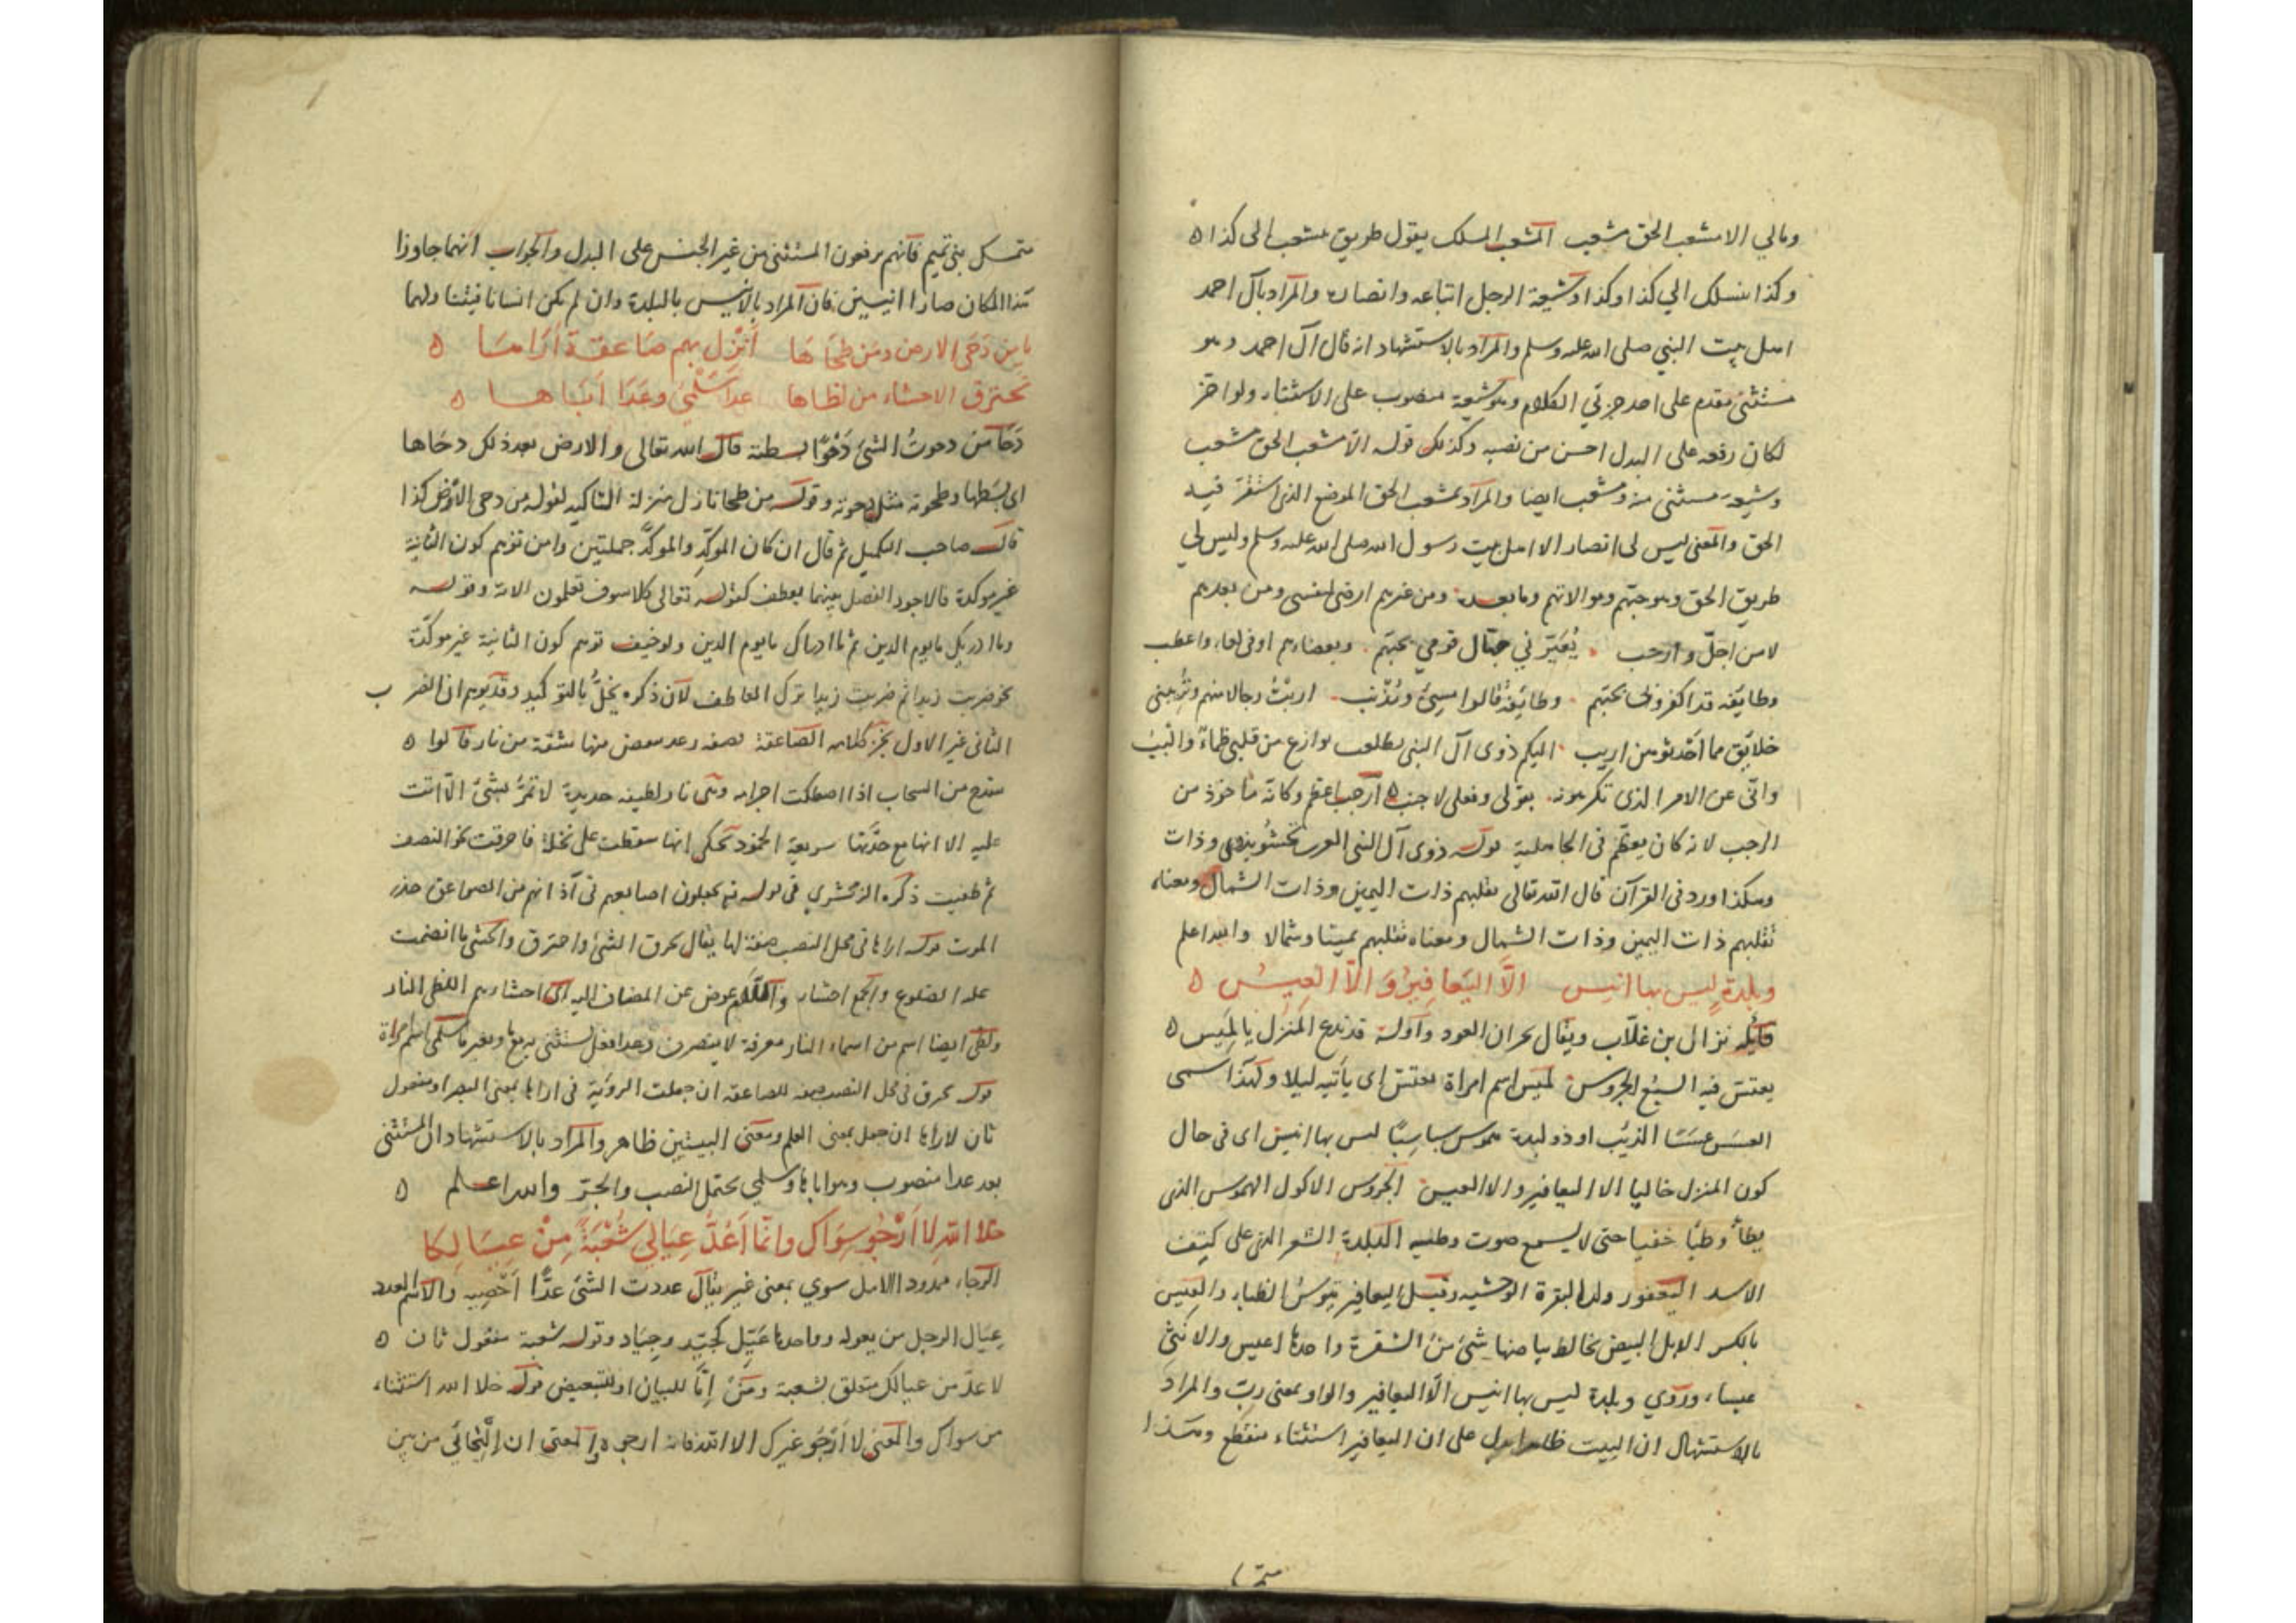 ومالي الا مشعب الحق مشعب المشعب المسلك يقول طريق مشعب الى كذا ه
وكذا مسلك الي كذا وكذا وشيعة الرجل اتباعه وانصاره والمراد بآل احمد
اهل بيت النبي صلى الله عليه وسلم والمراد بالاستشهاد انه قال آل احمد وهو
مستثنى مقدم على احد جزئي الكلام وهو شيعة منصوب على الاستثناء ولو اخر
لكان رفعه على البدل احسن من نصبه وكذلك قوله الا مشعب الحق مشعب
وشيعة مستثنى منه ومشعب ايضا والمراد بمشعب الحق الموضع الذي استقر فيه
الحق والمعنى ليس لي انصار الا اهل بيت رسول الله صلى الله عليه وسلم وليس لي
طريق الحق وهو حبّهم وموالاتهم وما بعده ومن غيرهم ارضى لنفسي ومن بعدهم
لا من اجلّ وارحب يُعَيّرني جهّال قومي بحبّهم وبغضاءهم ادنى لعار واعطب
وطايفة قد اكفروني بحبّهم وطايفة قالوا مسيئ ومذنب اربت رجالا منهم وتريبني
خلايق مما احدثوهن اريب اليكم ذوى آل النبي تطلعت نوازع من قلبي ظماء والبب
وانّي عن الامر الذي تكرهونه بقولي وفعلي لاجنب ه ارحب اعظم وكانّه ماخوذ من
الرجب لانه كان يعظّم في الجاهلية قوله ذوى آل النبي العرب بذي وذات
وهكذا ورد في القرآن قال الله تعالى نقلبهم ذات اليمين وذات الشمال ومعناه
نقلبهم ذات اليمين وذات الشمال ومعناه نقلبهم يمينا وشمالا والله اعلم
وبلدةٍ ليس بها انيس الاّ اليَعافيرُ وَ الاّ العِيسُ ه
قايله نزال بن غلّاب ويقال جران العود واوله قد ندع المنزل يا لميس ه
يعتسّ فيه السبع الجروس لميس اسم امراة يعتس اى ياتيه ليلا ولهذا سمى
العسس عسسا الذئب او ذو لبدة هموس بسابسًا ليس بها انيس اى في حال
كون المنزل خاليا الا اليعافير والا العيس الجروس الاكول الهموس الذى
يطأ وطيًا خفيا حتى لا يسمع صوت وطيه اللبدة الشعر الذى على كتف
الاسد اليعفور ولد البقرة الوحشية وقيل اليعافير تيوس الظباء والعيس
بالكسر الابل البيض يخالط بياضها شئ من الشقرة واحدها اعيس والانثى
عيساء وروي وبلدة ليس بها انيس الّا اليعافير والواو بمعنى ربّ والمراد
بالاستشهاد ان البيت ظاهرا يدل على ان اليعافير استثناء منقطع وهذا
متمسك بني تميم فانهم يرفعون المستثنى من غير الجنس على البدل والجواب انهما جاوزا
هذا المكان صارا انيسين فان المراد بالانيس بالبلدة وان لم يكن انسانا
يا من دَحَى الارض ومَن طحَاهَا اَنْزِل بهم صَاعقة اَرَاهسَا ه
تحترق الاحشاء من لظاها عدا سَلْمَى وعَدَا اَبَاهسا ه
دَحَا من دحوتُ الشئ دَحْوًا بسطته قال الله تعالى والارض بعد ذلك دحَاها
اى بسطها وطحوته مثل دحوته وقوله من طحا نازل منزلة التاكيد لقوله من دحى الارض كذا
قاله صاحب التكميل ثم قال ان كان الموكِّد والموكَّد جملتين وامن توهم كون الثانية
غير موكدة فالاجود الفصل بينهما بعطف كقوله تعالى كلا سوف تعلمون الاية وقوله
وما ادريك ما يوم الدين ثم ما ادراك ما يوم الدين ولو خيف توهم كون الثانية غير موكّدة
نحو ضربت زيدا ثم ضربت زيدا ترك العاطف لان ذكره يخلُّ بالتوكيد وقد يوهم ان الضرب
الثاني غير الاول الصاعقة قصفة رعد ينقض منها شقة من نار قالوا ه
تنقدح من السحاب اذا اصطكت اجرامه وهي نار لطيفة حديدة لا تمرُّ بشئ الّا اتت
عليه الا انها مع حدّتها سريعة الخمود يحكى انها سقطت على نخلة فاحرقت نحو النصف
ثم طفيت ذكره الزمخشري في قوله تع يجعلون اصابعهم في آذانهم من الصواعق حذر
الموت قوله اراها في محل النصب صفة لها يقال حرق الشئ واحترق والحشى ما انضمت
عليه الضلوع والجمع احشاء واللام عوض عن المضاف اليه اى احشاءهم اللظى النار
ولظى ايضا اسم من اسماء النار معرفة لا ينصرف وعدا فعل يستثنى به مع ما وبغير ما سلمى اسم امراة
قوله تحرق في محل النصب صفة للصاعقة ان جعلت الرؤية في اراها بمعنى البصر او مفعول
ثان لاراها ان جعل بمعنى العلم ومعنى البيتين ظاهر والمراد بالاستشهاد ان المستثنى
بعد عدا منصوب وهو اباها وسلمى يحتمل النصب والجرّ والله اعلم ه
خلا اللهِ لا اَرْجُو سِوَاك وانّما اَعُدُّ عِيَالي شُعْبَةً مِنْ عِيَا لِكَا
الرجاء ممدود الامل سوي بمعنى غير يقال عددت الشئ عدًّا اَحْصيه والاسم العدد
عيال الرجل من يعوله وواحدها عَيِّل كجيّد وجياد وقوله شعبة مفعول ثان ه
لاعدّ من عيالك متعلق بشعبة ومن إمّا للبيان او للتبعيض قوله خلا الله استثناء
من سواك والمعنى لا ارجو غيرك الا الله فانه ارجوه والمعنى ان التجائي من بين